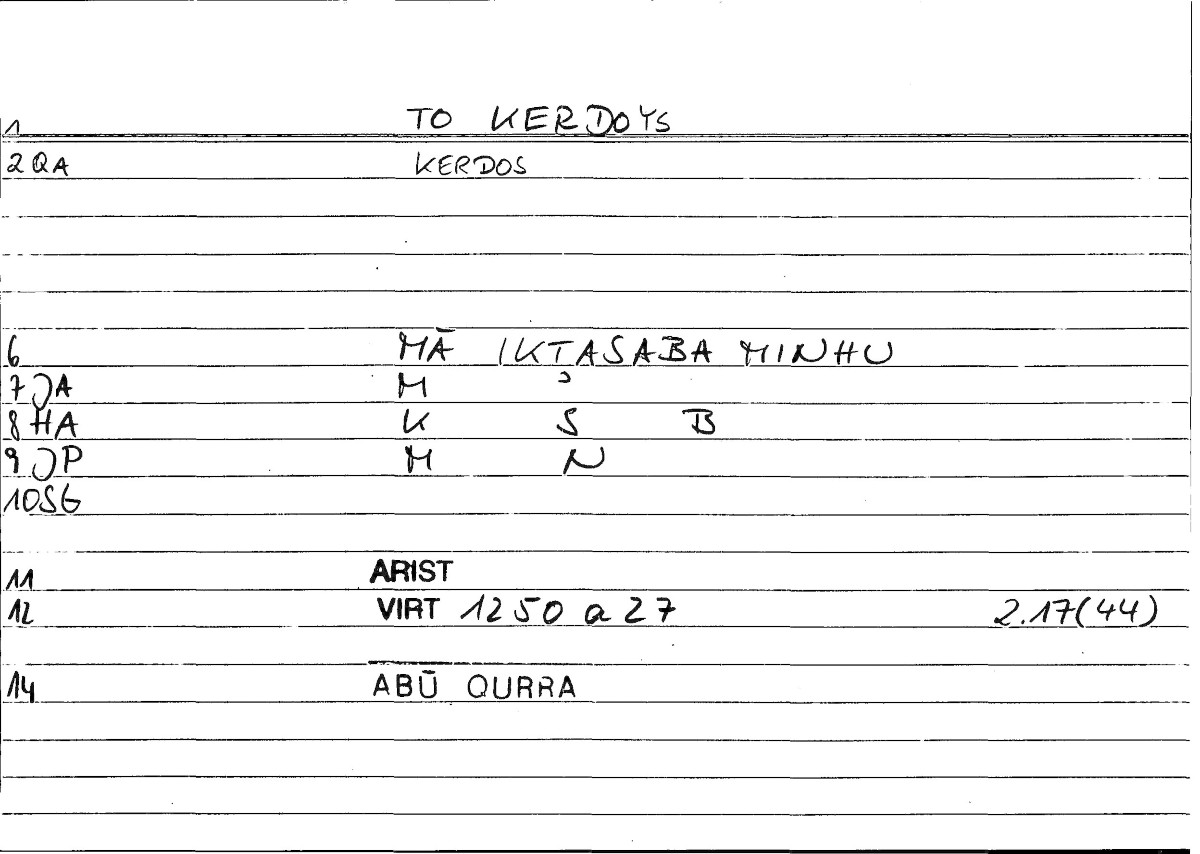 1 TO KERDOYS
2 QA KERDOS
6 MĀ IKTASABA MINHU
7 JA M ʾ
8 HA K S B
9 JP M N
10 SG
11 ARIST
12 VIRT 1250 a 27 2.17(44)
14 ABŪ QURRA